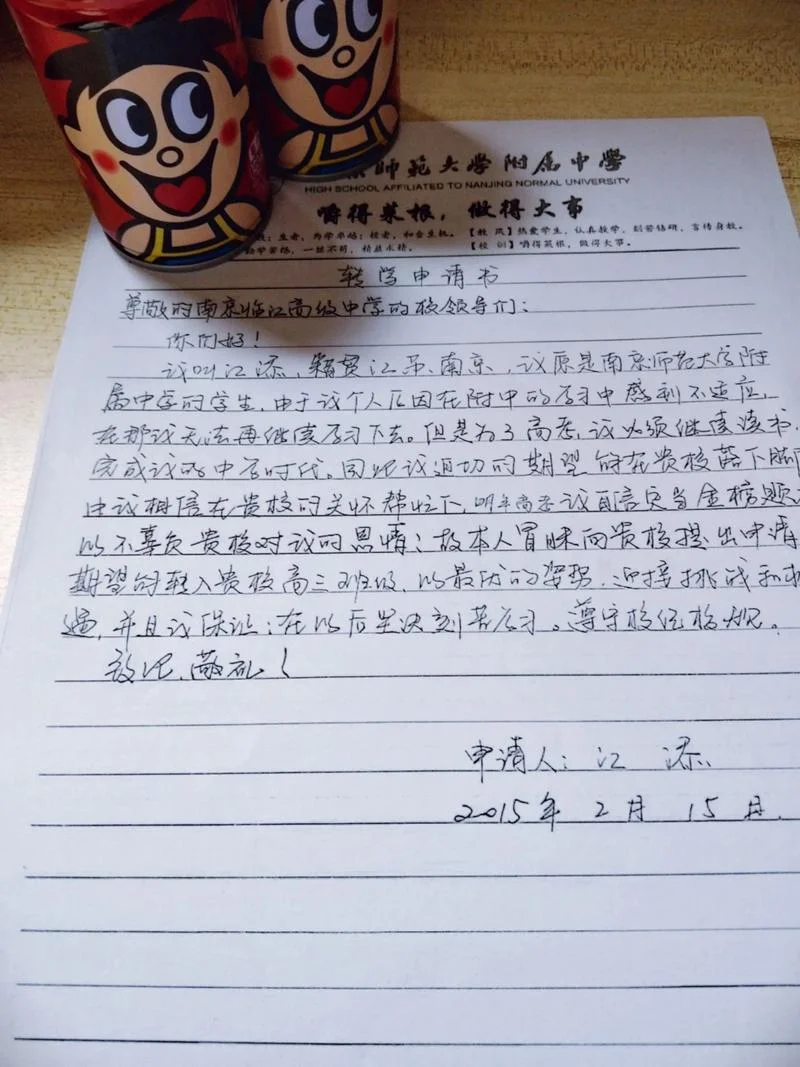 京师范大学附属中学
HIGH SCHOOL AFFILIATED TO NANJING NORMAL UNIVERSITY
嚼得菜根，做得大事
生者，为学卓站；校者，和合生机。 【教风】热爱学生，认真教学，刻苦钻研，言传身教。
勤学苦练，一丝不苟，精益求精。 【校训】嚼得菜根，做得大事。
转学申请书
尊敬的南京临江高级中学的校领导们：
你们好！
我叫江添，籍贯江苏、南京，我原是南京师范大学附
属中学的学生，由于我个人原因在附中的学习中感到不适应，
在那我无法再继续学习下去。但是为了高考，我必须继续读书，
完成我的中学时代。因此我迫切的期望能在贵校落下脚
由我相信在贵校的关怀帮忙下，明年高考我自信定当金榜题
以不辜负贵校对我的恩情；故本人冒昧向贵校提出申请
期望能转入贵校高三班级，以最优的姿势，迎接挑战和
遇，并且我保证：在以后坚决刻苦学习。遵守校纪校规。
致此，敬礼！
申请人：江 添
2015年 2月 15日